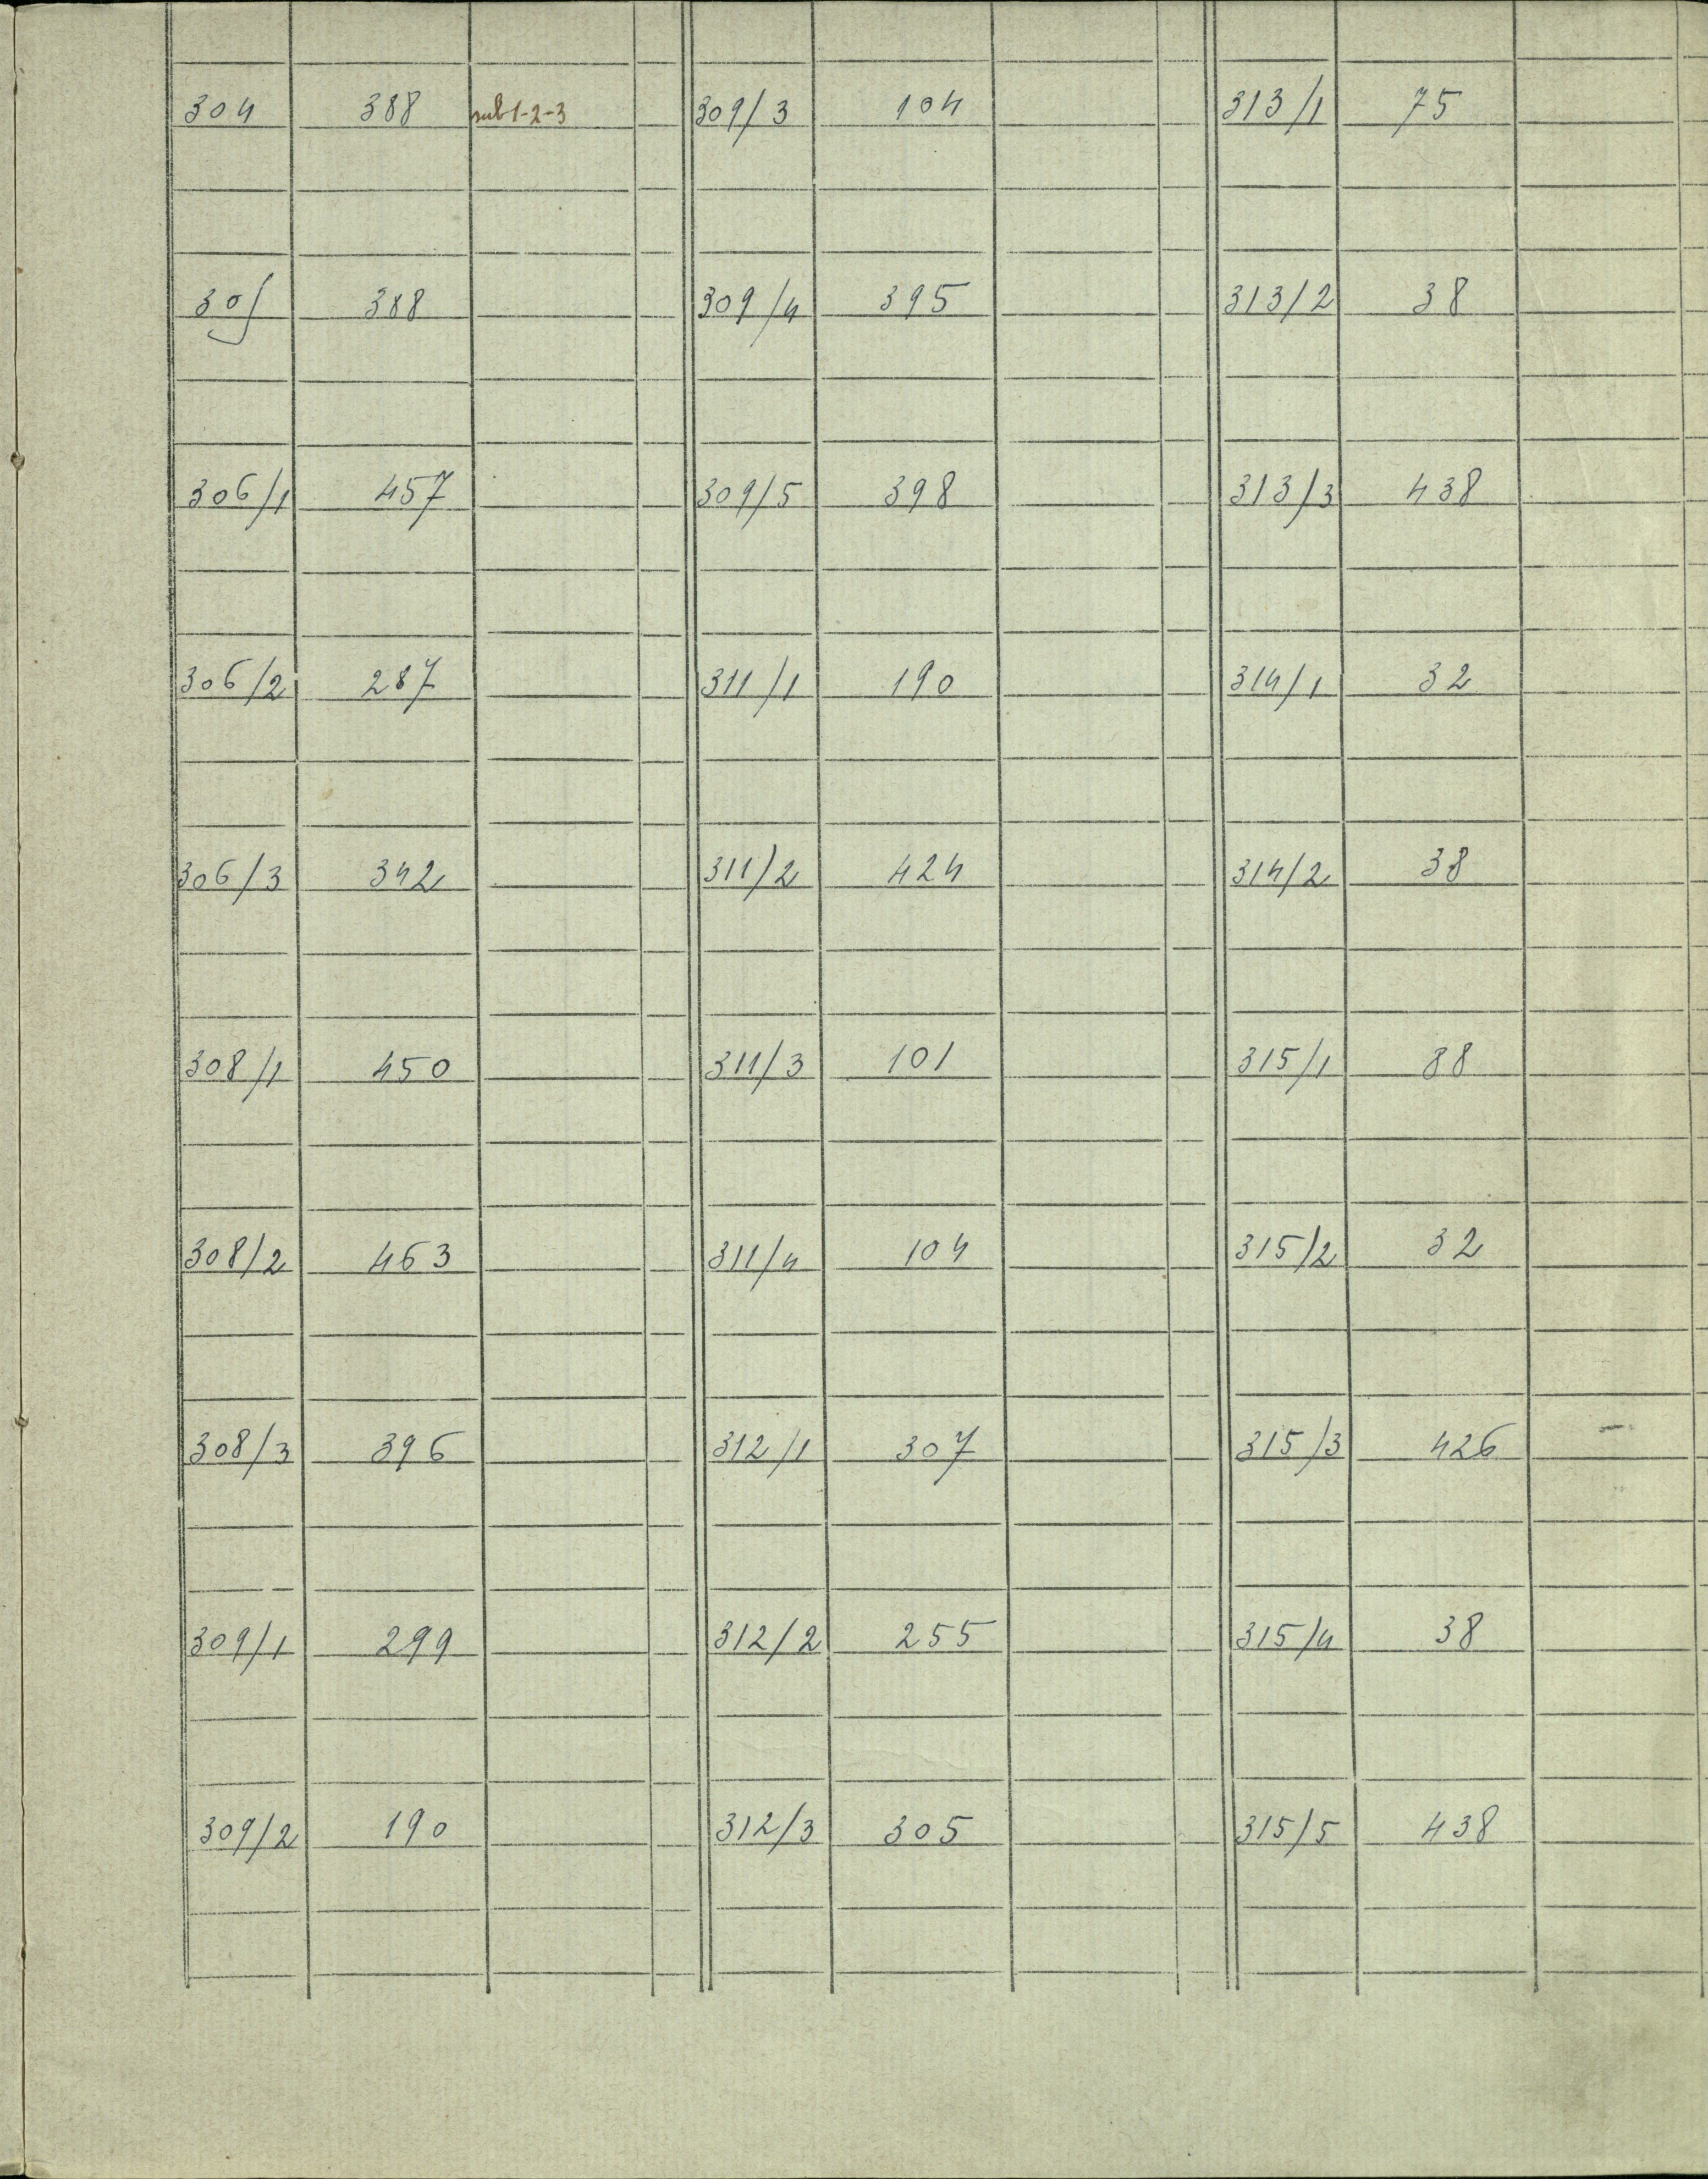 304 388 sub 1-2-3 309/3 104 313/1 75
305 388 309/4 395 313/2 38
306/1 457 309/5 398 313/3 438
306/2 287 311/1 190 314/1 32
306/3 342 311/2 424 314/2 38
308/1 450 311/3 101 315/1 88
308/2 463 311/4 104 315/2 32
308/3 396 312/1 307 315/3 426
309/1 299 312/2 255 315/4 38
309/2 190 312/3 305 315/5 438